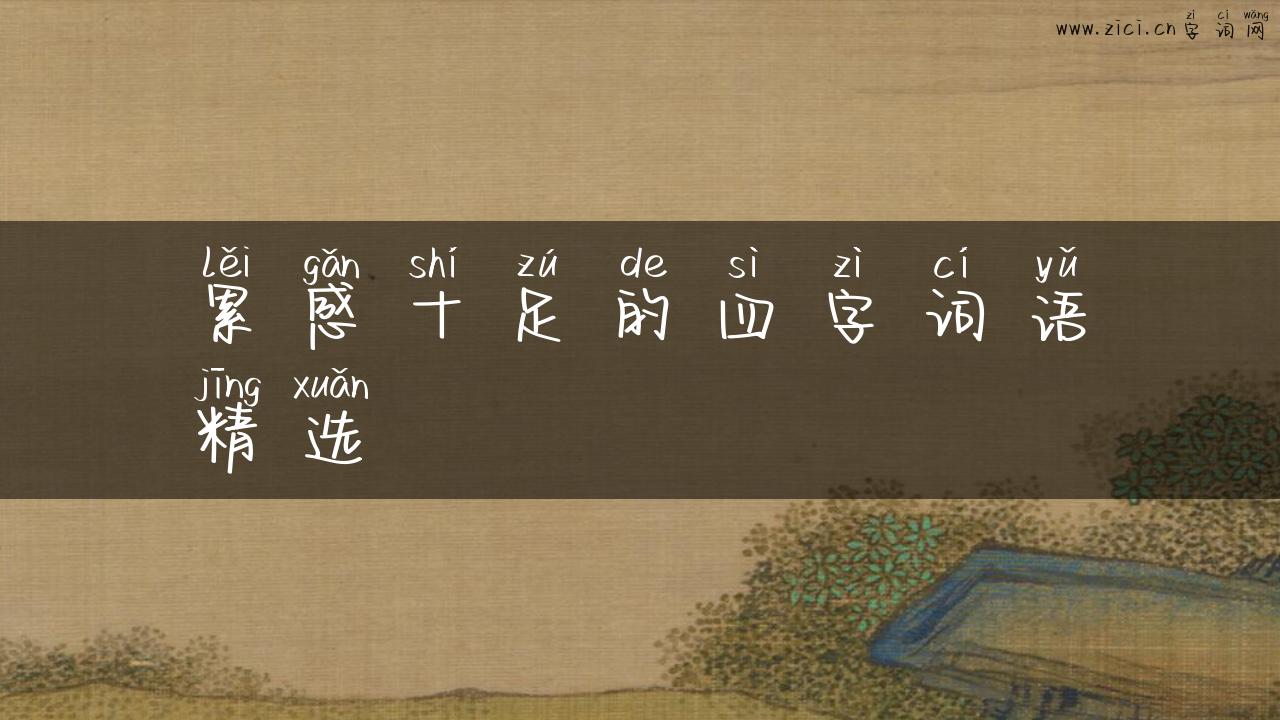 zì cí wǎng
www.zici.cn 字词网
lěi gǎn shí zú de sì zì cí yǔ
累感十足的四字词语
jīng xuǎn
精选